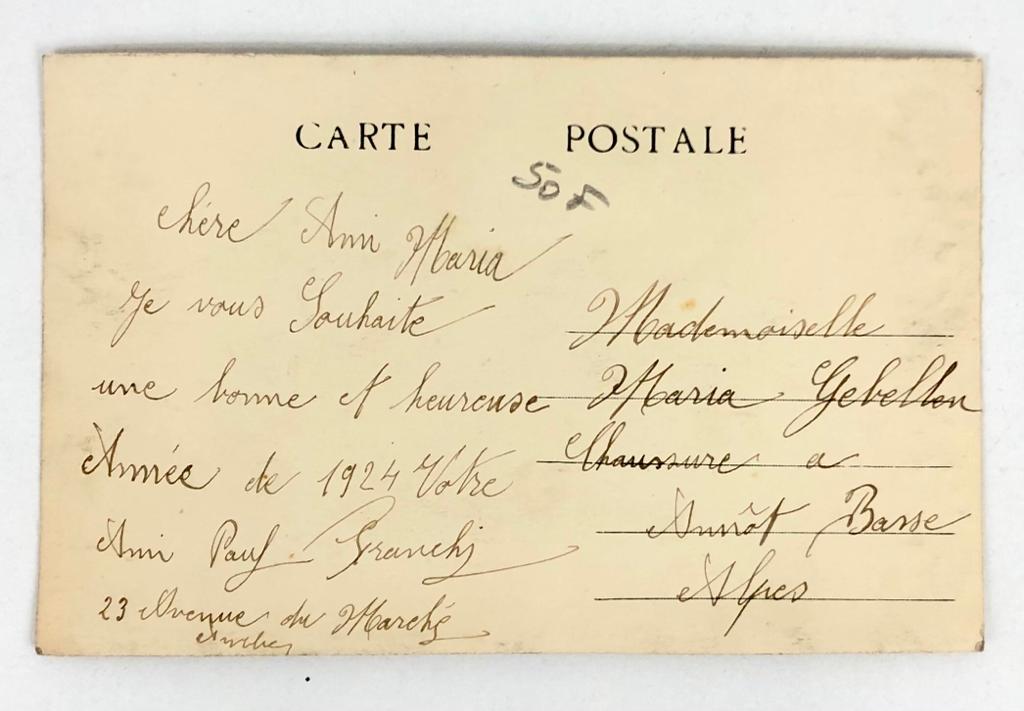 CARTE POSTALE
50F
chére Ami Maria
Je vous Souhaite
une bonne et heureuse
Année de 1924 Votre
Ami Paul Franchi
23 Avenue du Marché
Mademoiselle
Maria Gebellen
Chaussure a
Annôt Basse
Alpes